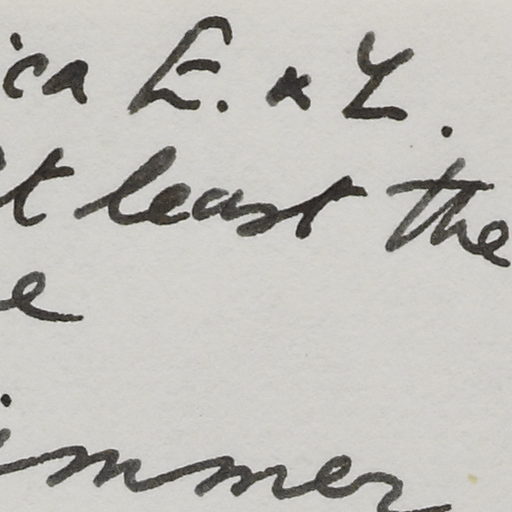 ica E. & L.
t least the
e
immer